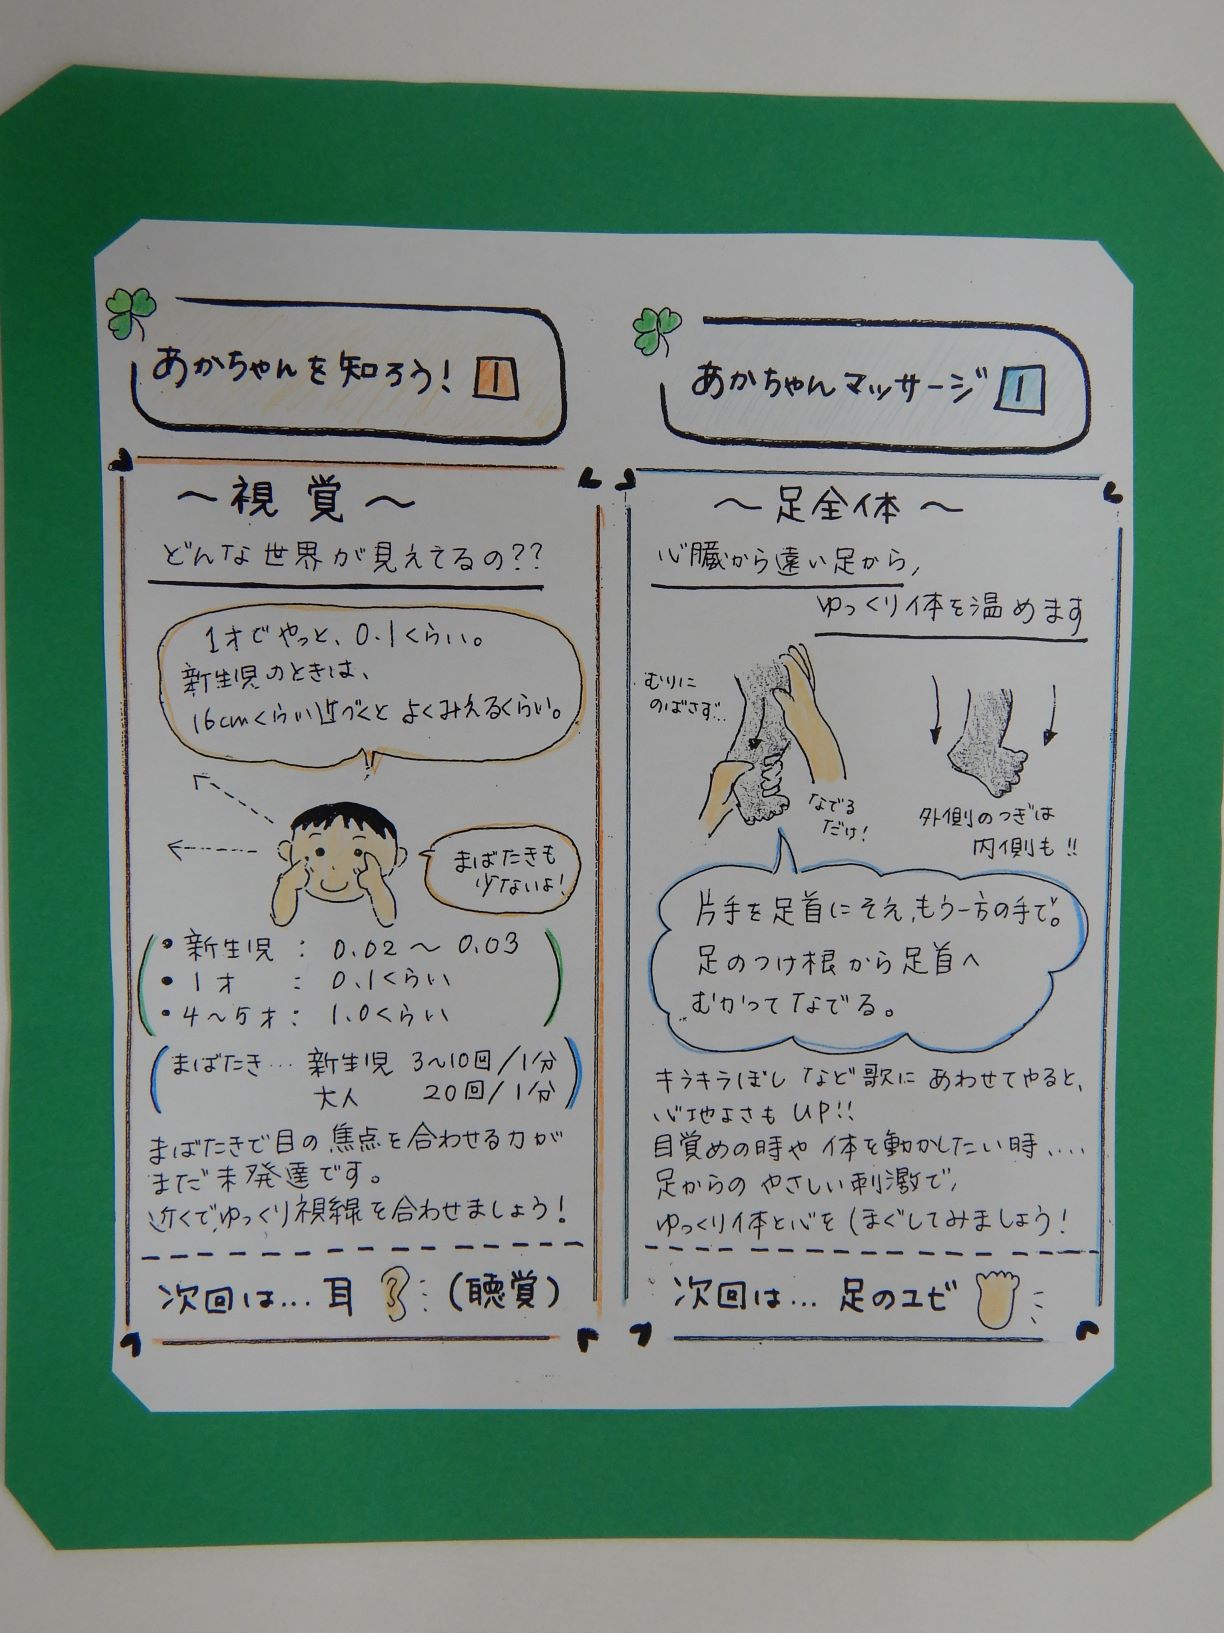 あかちゃんを知ろう! 1
～視覚～
どんな世界が見えてるの??
1才でやっと、0.1くらい。
新生児のときは、
16cmくらい近づくと よくみえるくらい。
まばたきも
少ないよ!
・新生児: 0.02～0.03
・1才 : 0.1くらい
・4～5才: 1.0くらい
まばたき… 新生児 3～10回/1分
大人 20回/1分
まばたきで目の焦点を合わせる力が
まだ未発達です。
近くで、ゆっくり視線を合わせましょう!
次回は… 耳 (聴覚)
あかちゃんマッサージ 1
～足全体～
心臓から遠い足から,
ゆっくり体を温めます
むりに
のばさず…
なでる
だけ!
外側のつぎは
内側も!!
片手を足首にそえ,もう一方の手で。
足のつけ根から足首へ
むかってなでる。
キラキラぼし など歌に あわせてやると、
心地よさも UP!!
目覚めの時や 体を動かしたい時、...
足からの やさしい刺激で,
ゆっくり体と心を ほぐしてみましょう!
次回は… 足のユビ